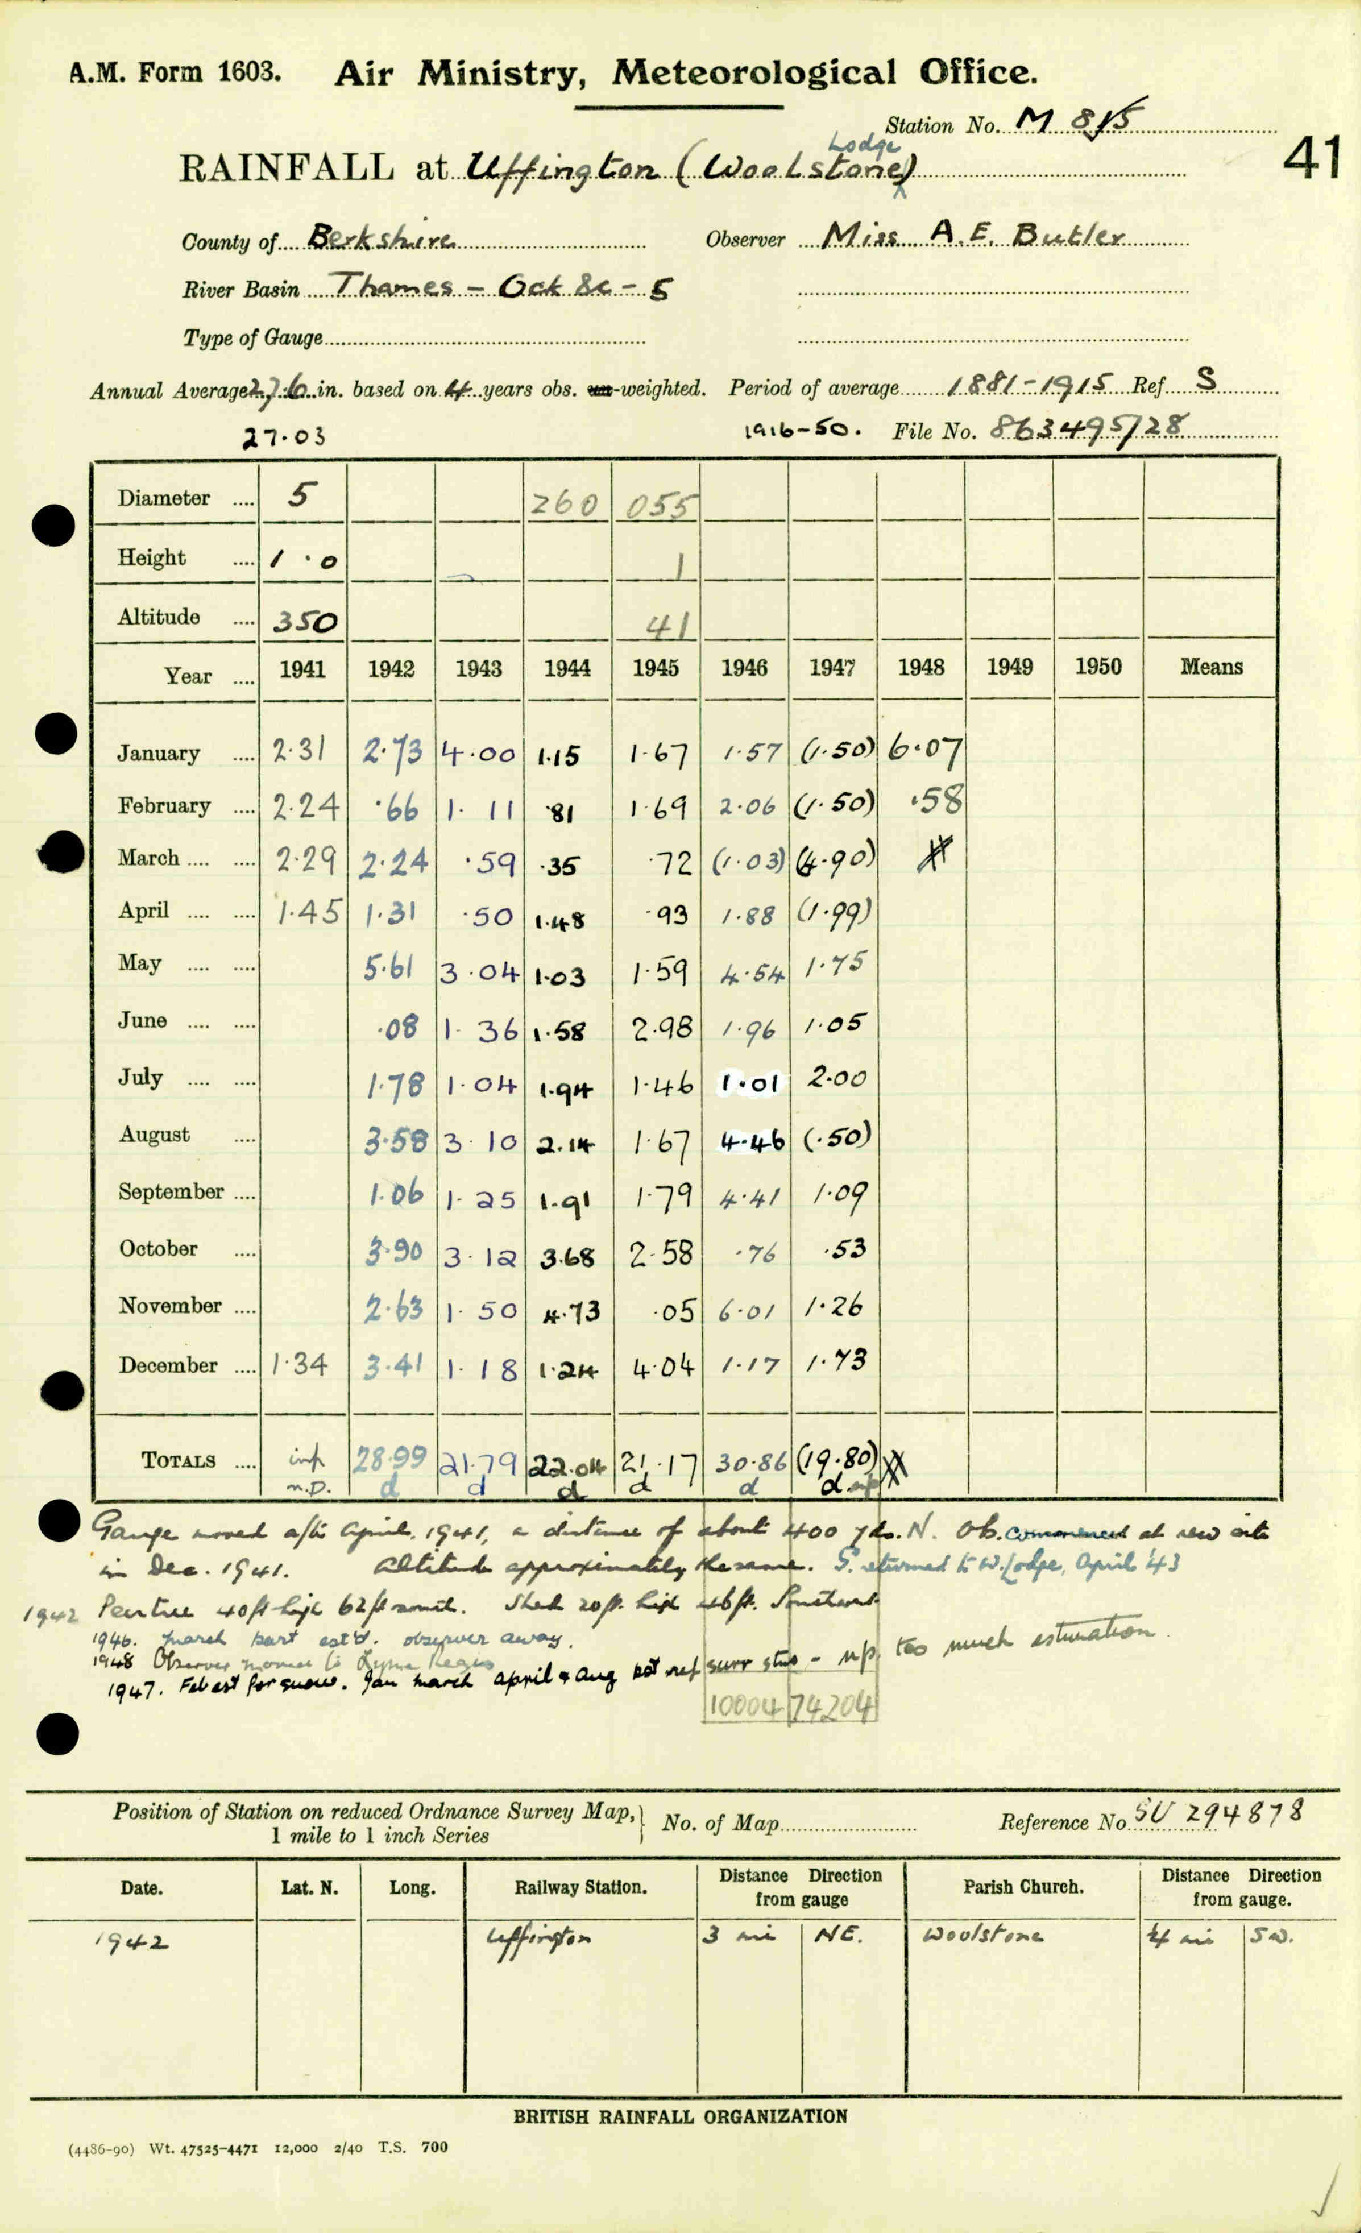 A.M. Form 1603. Air Ministry, Meteorological Office.
Station No. M 815
41
Lodge
RAINFALL at Uffington (Woolstone)
County of Berkshire Observer Miss A.E. Butler
River Basin Thames - Ock &c - 5
Type of Gauge
Annual Average 27.6 in. based on 4 years obs. un-weighted. Period of average 1881-1915 Ref. S
27.03 1916-50. File No. 863495/28
Diameter .... 5 260 055
Height .... 1.0 1
Altitude .... 350 41
Year .... 1941 1942 1943 1944 1945 1946 1947 1948 1949 1950 Means
January .... 2.31 2.73 4.00 1.15 1.67 1.57 (1.50) 6.07
February .... 2.24 .66 1.11 .81 1.69 2.06 (1.50) .58
March .... .... 2.29 2.24 .59 .35 .72 (1.03) (4.90)
April .... .... 1.45 1.31 .50 1.48 .93 1.88 (1.99)
May .... .... 5.61 3.04 1.03 1.59 4.54 1.75
June .... .... .08 1.36 1.58 2.98 1.96 1.05
July .... .... 1.78 1.04 1.94 1.46 1.01 2.00
August .... 3.58 3.10 2.14 1.67 4.46 (.50)
September .... 1.06 1.25 1.91 1.79 4.41 1.09
October .... 3.90 3.12 3.68 2.58 .76 .53
November .... 2.63 1.50 4.73 .05 6.01 1.26
December .... 1.34 3.41 1.18 1.24 4.04 1.17 1.73
TOTALS .... inf 28.99 21.79 22.04 21.17 30.86 (19.80)
n.p. d d d d d d np
Gauge moved after April, 1941, a distance of about 400 yds. N. Ob. commenced at new site
in Dec. 1941. Altitude approximately the same. returned to W. Lodge, April '43
1942 Peartree 40ft high 62ft south. Shed 20ft. high 46ft. Southwest
1946. March part est'd. observer away.
1948 Observer moved to Lyme Regis
1947. Feb est for snow. Jan March April & Aug not ref surr stns - np. too much estimation.
10004 74204
Position of Station on reduced Ordnance Survey Map, 1 mile to 1 inch Series } No. of Map Reference No. SU 294878
Date. Lat. N. Long. Railway Station. Distance Direction from gauge Parish Church. Distance Direction from gauge.
1942 Uffington 3 mi NE. Woolstone ¼ mi SW.
BRITISH RAINFALL ORGANIZATION
(4486-90) Wt. 47525-4471 12,000 2/40 T.S. 700